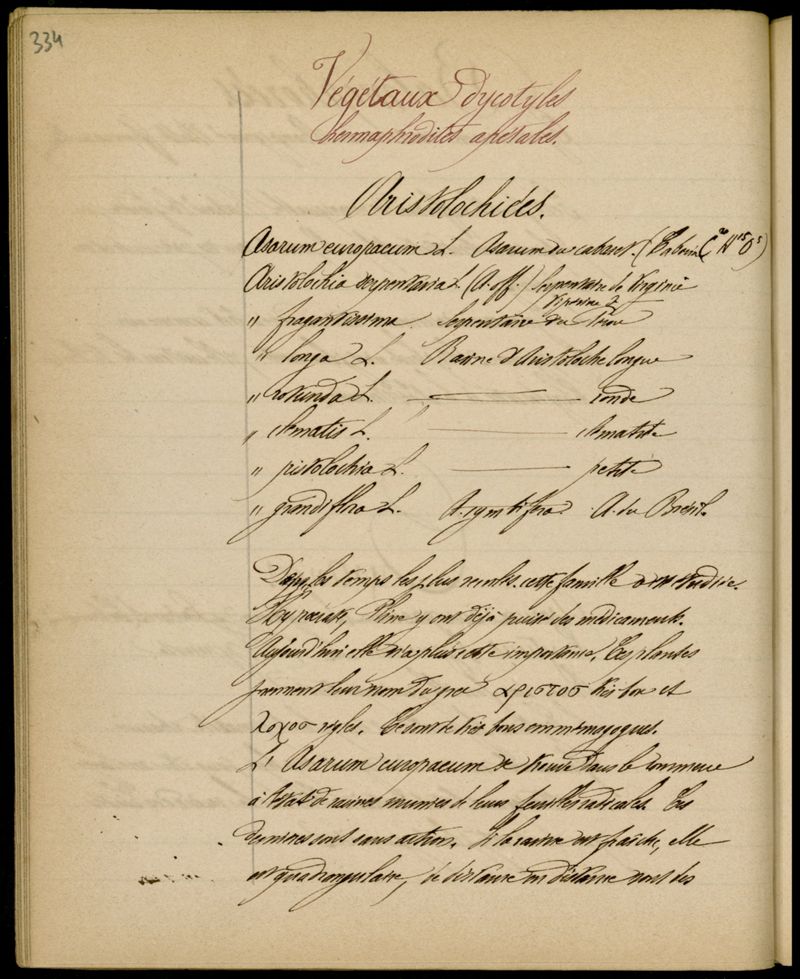 334
Végétaux dycotyles
hermaphrodites apétales.
Aristolochiés.
Asarum europaeum L. Asarum du cabaret. (
Aristolochia serpentaria L. (A. off.) Serpentaire de Virginie
Vipérine
" fragantissima. Serpentaire du Pérou
" longa L. Racine d'Aristoloche longue
" rotunda L. ronde
" clematis L. clématite
" pistolochia L. petite
" grandiflora L. A. cymbifera A. du Brésil.
les temps les plus reculés cette famille a été étudiée.
Hypocrate, Pline y ont déjà puisé des médicaments.
Aujourd'hui elle n'a plus cette importance. Ces plantes
prennent leur nom du grec αριστοσ très bon et
λοχοσ règles. Ce sont de très bons emménagogues.
L'Asarum europaeum se trouve dans le commerce
à l'état de racines munies de leurs feuilles radicales. Ces
dernières sont sans action. Si la racine est fraîche, elle
est quadrangulaire, de distance en distance sont des